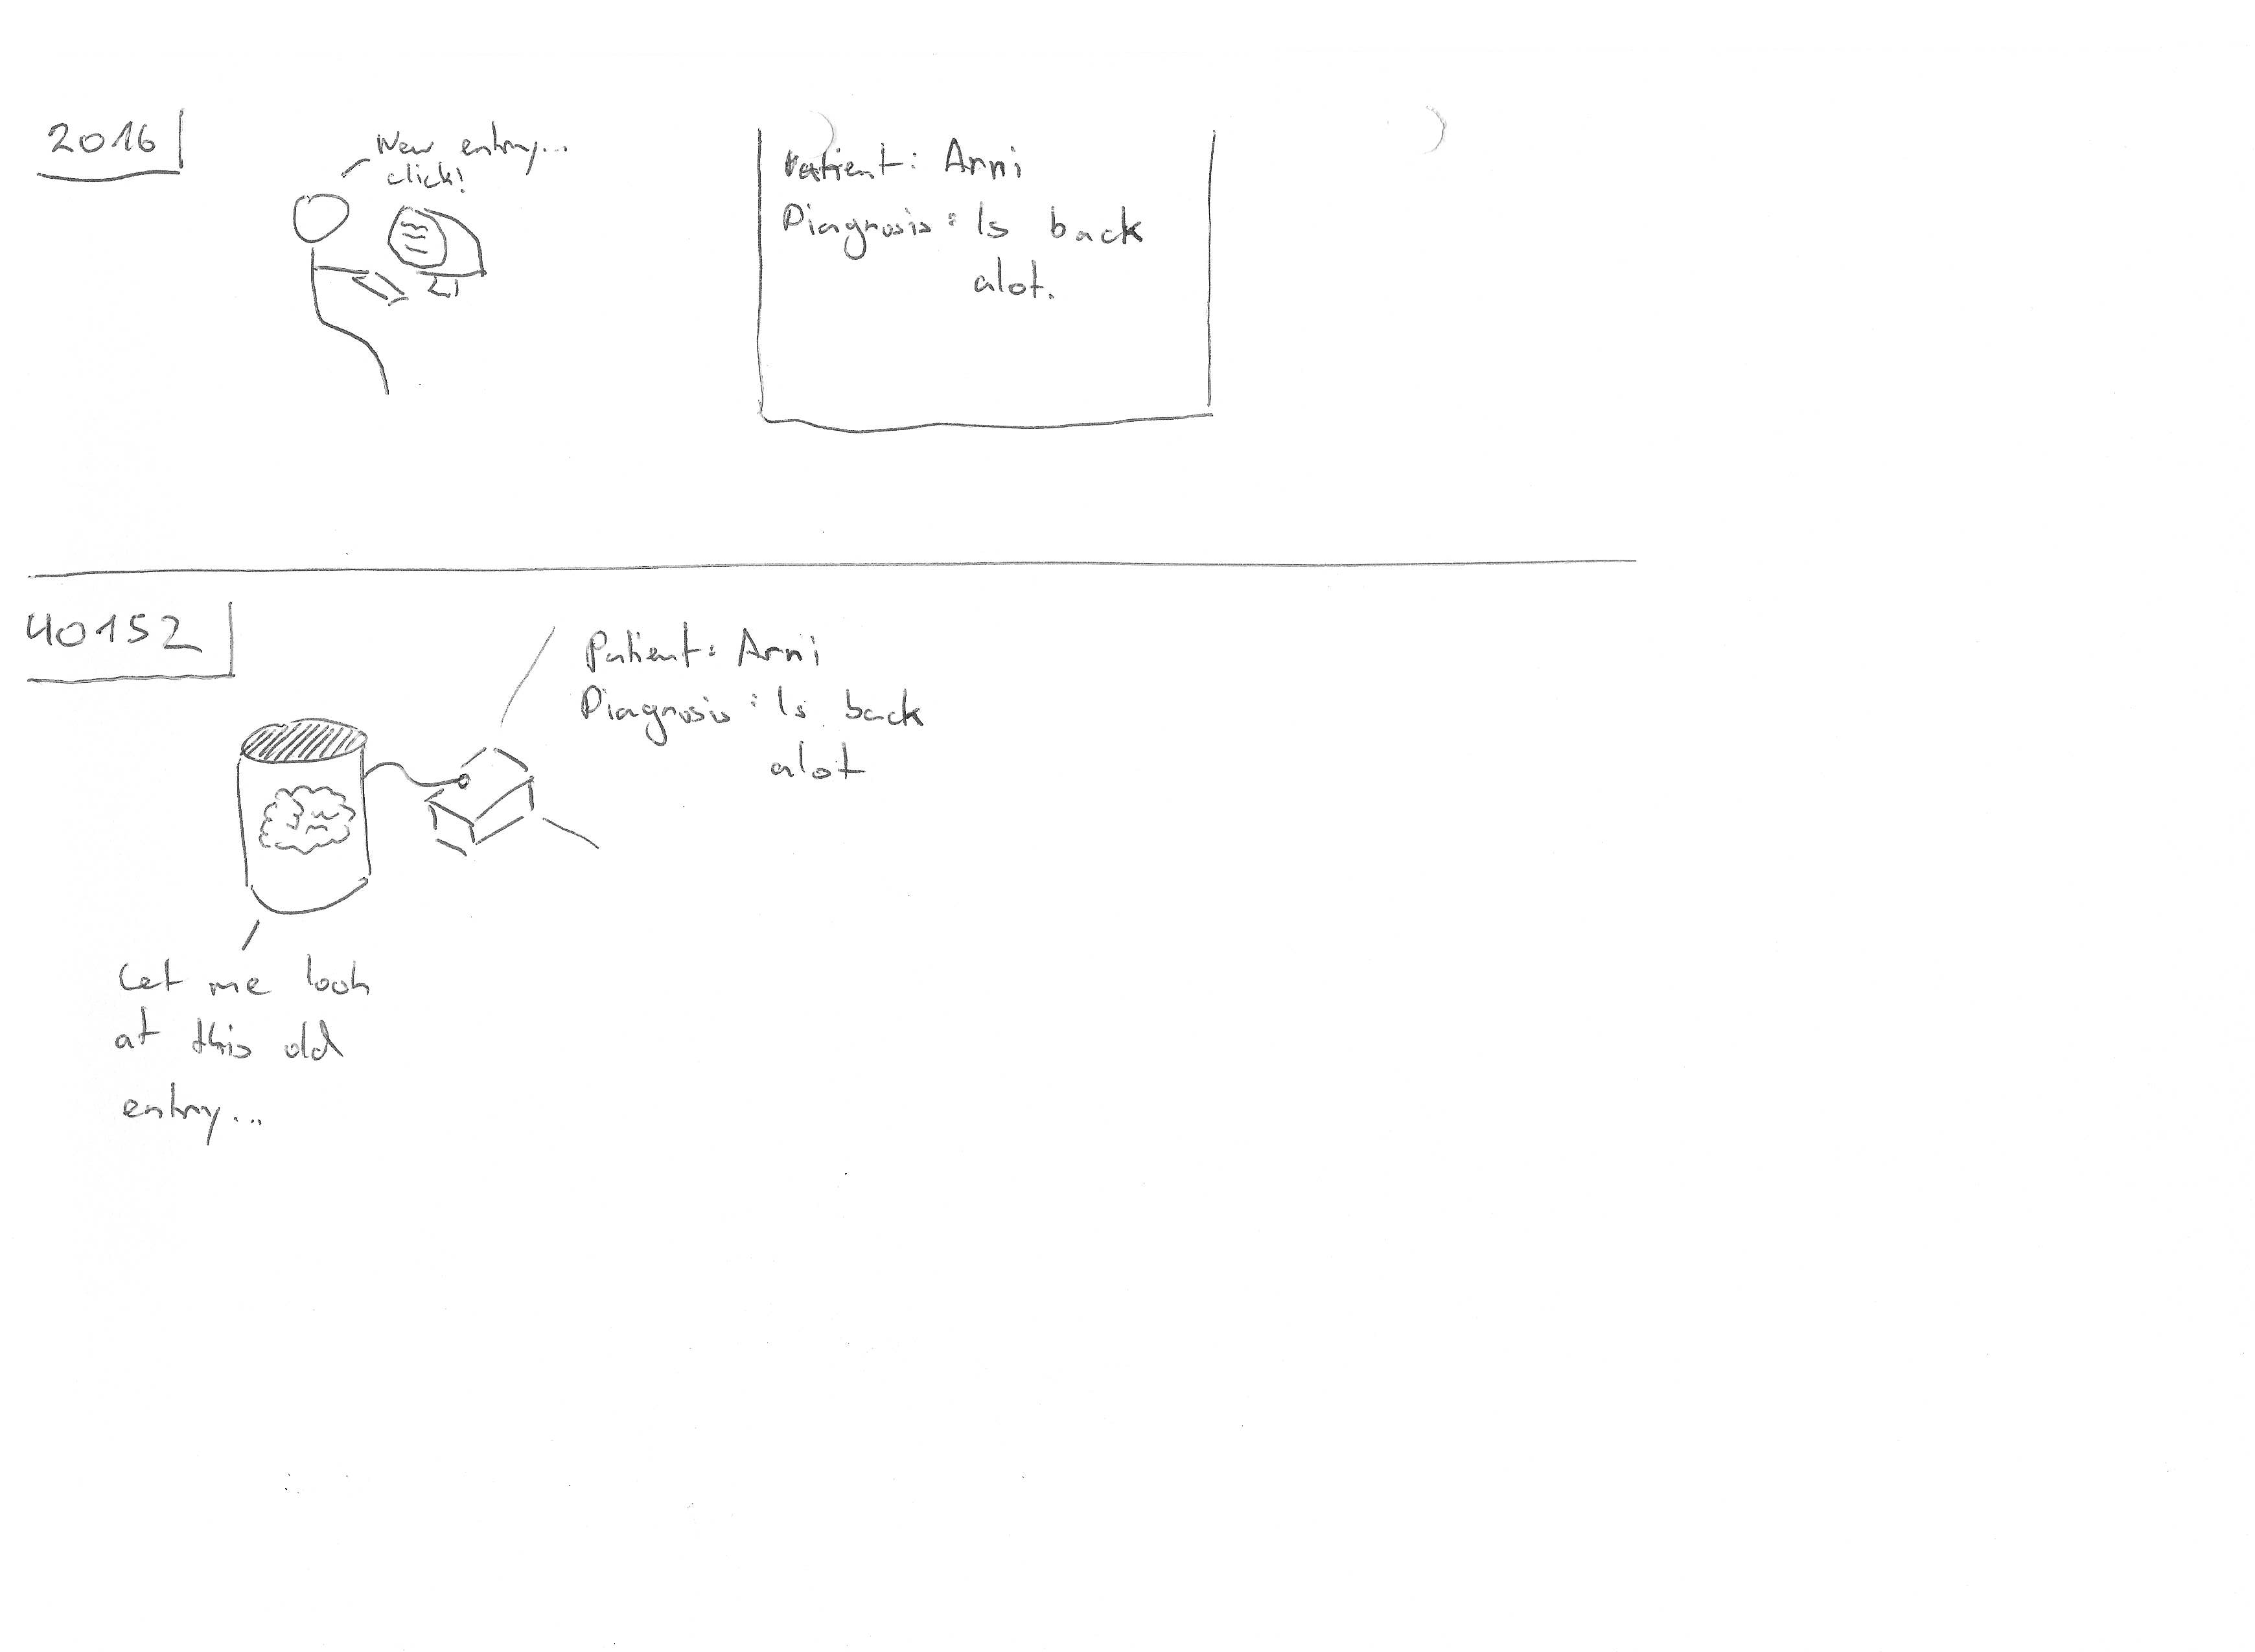 2016
New entry...
click!
Patient: Arni
Diagnosis: Is back
alot.
40152
Patient: Arni
Diagnosis: Is back
alot
Let me look
at this old
entry...